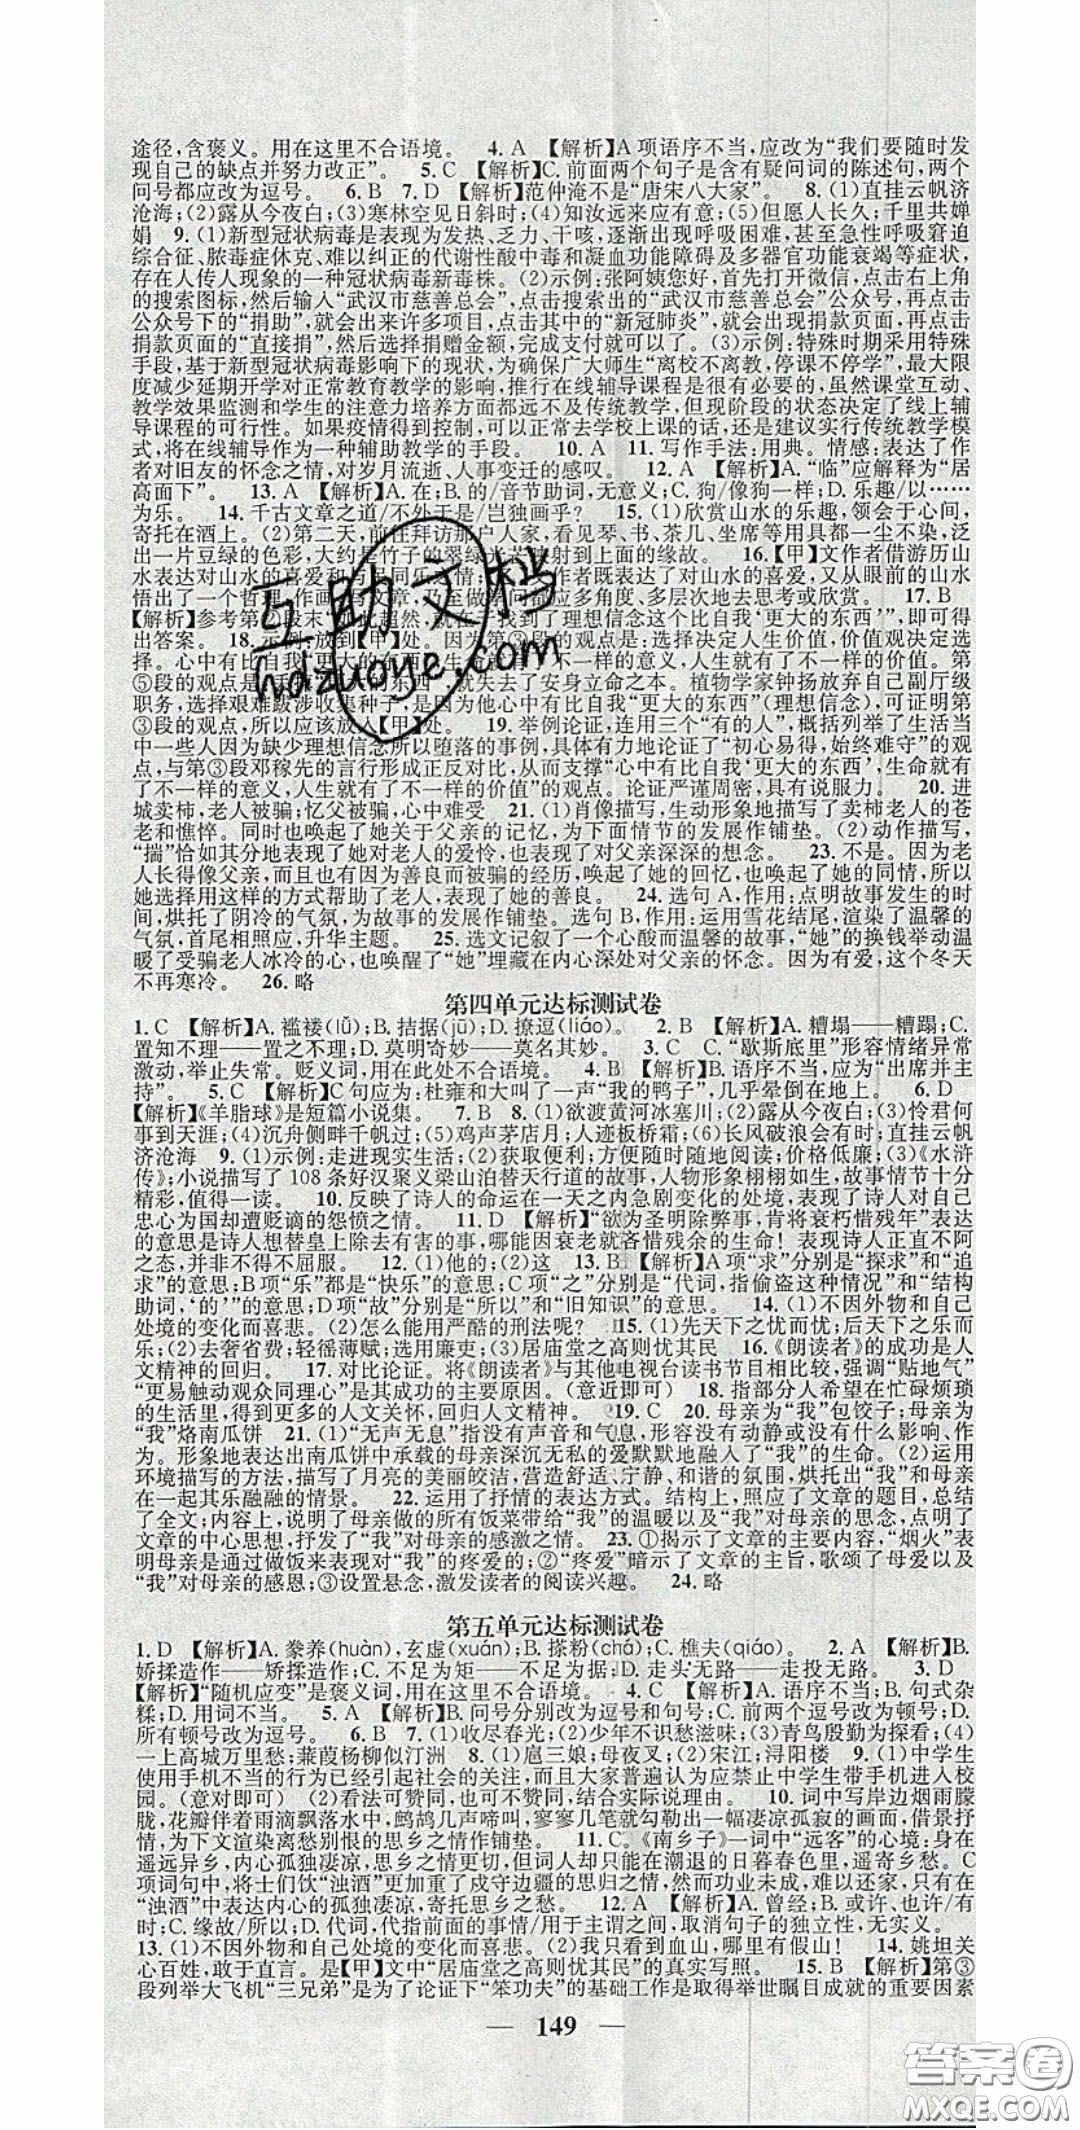 途径,含褒义。用在这里不合语境。 4. A 【解析】A 项语序不当,应改为“我们要随时发
现自己的缺点并努力改正”。 5. C 【解析】C. 前面两个句子是含有疑问词的陈述句,两个
问号都应改为逗号。 6. B 7. D 【解析】范仲淹不是“唐宋八大家”。 8. (1)直挂云帆济
沧海;(2)露从今夜白;(3)寒林空见日斜时;(4)知汝远来应有意;(5)但愿人长久;千里共婵
娟 9. (1)新型冠状病毒是表现为发热、乏力、干咳,逐渐出现呼吸困难,甚至急性呼吸窘迫
综合征、脓毒症休克、难以纠正的代谢性酸中毒和凝血功能障碍及多器官功能衰竭等症状,
存在人传人现象的一种冠状病毒新毒株。(2)示例:张阿姨您好,首先打开微信,点击右上角
的搜索图标,然后输入“武汉市慈善总会”,点击搜索出的“武汉市慈善总会”公众号,再点击
公众号下的“捐助”,就会出来许多项目,点击其中的“新冠肺炎”,就会出现捐款页面,再点击
捐款页面的“直接捐”,然后选择捐赠金额,完成支付就可以了。(3)示例:特殊时期采用特殊
手段,基于新型冠状病毒影响下的现状,为确保广大师生“离校不离教,停课不停学”,最大限
度减少延期开学对正常教育教学的影响,推行在线辅导课程是很有必要的,虽然课堂互动、
教学效果监测和学生的注意力培养方面都远不及传统教学,但现阶段的状态决定了线上辅
导课程的可行性。如果疫情得到控制,可以正常去学校上课的话,还是建议实行传统教学模
式,将在线辅导作为一种辅助教学的手段。 10. A 11. 写作手法:用典。情感:表达了作
者对旧友的怀念之情,对岁月流逝、人事变迁的感叹。 12. A 【解析】A. “临”应解释为“居
高面下”。 13. A 【解析】A. 在;B. 的/音节助词,无意义;C. 狗/像狗一样;D. 乐趣/以……
为乐。 14. 千古文章之道/不外于是/岂独画乎? 15. (1)欣赏山水的乐趣,领会于心间,
寄托在酒上。(2)第二天,前往拜访那户人家,看见琴、书、茶几、坐席等用具都非常洁净,泛
出一片豆绿的色彩,大约是竹子的翠绿光芒映射到上面的缘故。 16.【甲】文作者借游历山
水表达对山水的喜爱和与民同乐之情;作者既表达了对山水的喜爱,又从眼前的山水
悟出了一个哲理:作画与文章,乃至做学问都应多角度、多层次地去思考或欣赏。 17. B
【解析】参考第②段末“如此超然,就在于找到理想信念这个比自我‘更大的东西’”,即可得
出答案。 18. 示例:放到【甲】处。因为第③段的观点是:选择决定人生价值,价值观决定选
择。心中有比自我“更大的东西”,生命就有了不一样的意义,人生就有了不一样的价值。第
⑤段的观点是:无我“更大的东西”,就失去了安身立命之本。植物学家钟扬放弃自己副厅级
职务,选择艰难跋涉收集种子,是因为他心中有比自我“更大的东西”(理想信念),可证明第
③段的观点,所以应该放入【甲】处。 19. 举例论证,连用三个“有的人”,概括列举了生活当
中一些人因为缺少理想信念所以堕落的事例,具体有力地论证了“初心易得,始终难守”的观
点,与第③段邓稼先的言行形成正反对比,从而支撑“心中有比自我‘更大的东西’,生命就有
了不一样的意义,人生就有了不一样的价值”的观点。论证严谨周密,具有说服力。 20. 进
城卖柿,老人被骗;忆父被骗,心中难受 21. (1)肖像描写,生动形象地描写了卖柿老人的苍
老和憔悴。同时也唤起了她关于父亲的记忆,为下面情节的发展作铺垫。(2)动作描写,
“揣”恰如其分地表现了她对老人的爱怜,也表现了对父亲深深的想念。 23. 不是。因为老
人长得像父亲,而且也有因为善良而被骗的经历,唤起了她的回忆,唤起了她的同情,所以
她选择用这样的方式帮助了老人,表现了她的善良。 24. 选句 A,作用:点明故事发生的时
间,烘托了阴冷的气氛,为故事的发展作铺垫。选句 B,作用:运用雪花结尾,渲染了温馨的
气氛,首尾相照应,升华主题。 25. 选文记叙了一个心酸而温馨的故事,“她”的换钱举动温
暖了受骗老人冰冷的心,也唤醒了“她”埋藏在内心深处对父亲的怀念。因为有爱,这个冬天
不再寒冷。 26. 略
第四单元达标测试卷
1. C 【解析】A. 褴褛(lǚ);B. 拮据(jū);D. 撩逗(liáo)。 2. B 【解析】A. 糟塌——糟蹋;C.
置知不理——置之不理;D. 莫明奇妙——莫名其妙。 3. C C. “歇斯底里”形容情绪异常
激动,举止失常。贬义词,用在此处不合语境。 4. B 【解析】B. 语序不当,应为“出席并主
持”。 5. C 【解析】C 句应为:杜雍和大叫了一声“我的鸭子”,几乎晕倒在地上。 6. D
【解析】《羊脂球》是短篇小说集。 7. B 8. (1)欲渡黄河冰塞川;(2)露从今夜白;(3)怜君何
事到天涯;(4)沉舟侧畔千帆过;(5)鸡声茅店月;人迹板桥霜;(6)长风破浪会有时;直挂云帆
济沧海 9. (1)示例:走进现实生活;(2)获取便利;方便随时随地阅读;价格低廉;(3)《水浒
传》;小说描写了 108 条好汉聚义梁山泊替天行道的故事,人物形象栩栩如生,故事情节十分
精彩,值得一读。 10. 反映了诗人的命运在一天之内急剧变化的处境,表现了诗人对自己
忠心为国却遭贬谪的怨愤之情。 11. D 【解析】“欲为圣明除弊事,肯将衰朽惜残年”表达
的意思是诗人想替皇上除去有害的事,哪能因衰老就吝惜残余的生命!表现诗人正直不阿
之态,并非不得不屈服。 12. (1)他的;(2)这 13. B 【解析】A项“求”分别是“探求”和“追
求”的意思;B项“乐”都是“快乐”的意思;C项“之”分别是“代词,指偷盗这种情况”和“结构
助词,‘的’”的意思;D项“故”分别是“所以”和“旧知识”的意思。 14. (1)不因外物和自己
处境的变化而喜悲。(2)怎么能用严酷的刑法呢? 15. (1)先天下之忧而忧;后天下之乐而
乐;(2)去奢省费;轻徭薄赋;选用廉吏;(3)居庙堂之高则忧其民 16.《朗读者》的成功是人
文精神的回归。 17. 对比论证。将《朗读者》与其他电视台读书节目相比较,强调“贴地气”
“更易触动观众同理心”是其成功的主要原因。(意近即可) 18. 指部分人希望在忙碌烦琐
的生活里,得到更多的人文关怀,回归人文精神。 19. C 20. 母亲为“我”包饺子;母亲为
“我”烙南瓜饼 21. (1)“无声无息”指没有声音和气息,形容没有动静或没有什么影响、作
为。形象地表达出南瓜饼中承载的母亲深沉无私的爱默默地融入了“我”的生命。(2)运用
环境描写的方法,描写了月亮的美丽皎洁,营造舒适、宁静、和谐的氛围,烘托出“我”和母亲
在一起其乐融融的情景。 22. 运用了抒情的表达方式。结构上,照应了文章的题目,总结
了全文;内容上,说明了母亲做的所有饭菜带给“我”的温暖以及“我”对母亲的思念,点明了
文章的中心思想,抒发了“我”对母亲的感激之情。 23. ①揭示了文章的主要内容,“烟火”表
明母亲是通过做饭来表现对“我”的疼爱的;②“疼爱”暗示了文章的主旨,歌颂了母爱以及
“我”对母亲的感恩;③设置悬念,激发读者的阅读兴趣。 24. 略
第五单元达标测试卷
1. D 【解析】A. 豢养(huàn),玄虚(xuán);B. 搽粉(chá);C. 樵夫(qiáo)。 2. A 【解析】B.
娇揉造作——矫揉造作;C. 不足为矩——不足为据;D. 走头无路——走投无路。 3. D
【解析】“随机应变”是褒义词,用在这里不合语境。 4. C 【解析】A. 语序不当;B. 句式杂
糅;D. 用词不当。 5. A 【解析】B. 问号分别改为逗号和句号;C. 前两个逗号改为顿号;D.
所有顿号改为逗号。 6. B 7. (1)收尽春光;(2)少年不识愁滋味;(3)青鸟殷勤为探看;(4)
一上高城万里愁;蒹葭杨柳似汀洲 8. (1)扈三娘;母夜叉;(2)宋江;浔阳楼 9. (1)中学生
使用手机不当的行为已经引起社会的关注,而且大家普遍认为应禁止中学生带手机进入校
园。(意对即可) (2)看法可赞同,也可不赞同,结合实际说理由。 10. 词中写岸边烟雨朦
胧,花瓣伴着雨滴飘落水中,鹧鸪几声啼叫,寥寥几笔就勾勒出一幅凄凉孤寂的画面,借景抒
情,为下文渲染离愁别恨的思乡之情作铺垫。 11. C。《南乡子》一词中“远客”的心境:身在
遥远异乡,内心孤独凄凉,思乡之情更切,但词人却只能在潮退的日暮春色里,遥寄乡愁。C
项词句中,将士们饮“浊酒”更加重了戍守边疆的思归之情,然而功业未成,难以还家,只有在
“浊酒”中表达内心的孤独凄凉,寄托思乡之愁。 12. A 【解析】A. 曾经;B. 或许、也许/有
时;C. 缘故/所以;D. 代词,代指前面的事情/用于主谓之间,取消句子的独立性,无实义。
13. (1)不因外物和自己处境的变化而喜悲。(2)我只看到血山,哪里有假山! 14. 姚坦关
心百姓,敢于直言,是【甲】文中“居庙堂之高则忧其民”的真实写照。 15. B 【解析】第③
段列举大飞机“三兄弟”是为了论证下“笨功夫”的基础工作是取得举世瞩目成就的重要因素
— 149 —
互助文档
hdzuoye.com
答案圈
MXQE.COM